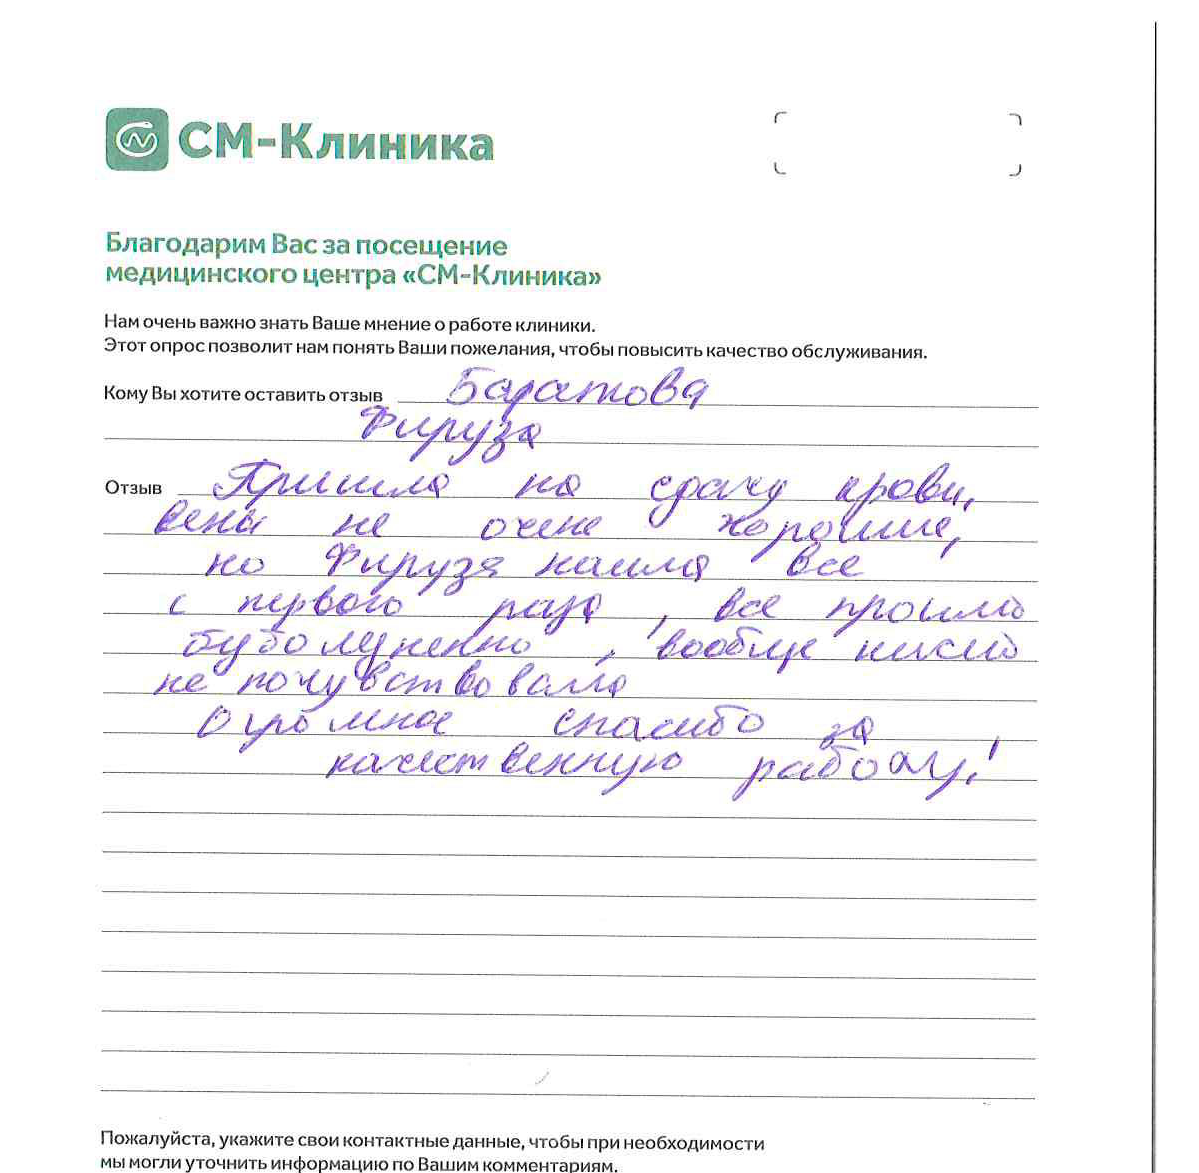 СМ-Клиника
Благодарим Вас за посещение
медицинского центра «СМ-Клиника»
Нам очень важно знать Ваше мнение о работе клиники.
Этот опрос позволит нам понять Ваши пожелания, чтобы повысить качество обслуживания.
Кому Вы хотите оставить отзыв Баратова
Фируза
Отзыв Пришла на сдачу крови,
вены не очень хорошие,
но Фируза нашла все
с первого раза, все прошло
безболезненно, вообще ничего
не почувствовала
Огромное спасибо за
качественную работу!
Пожалуйста, укажите свои контактные данные, чтобы при необходимости
мы могли уточнить информацию по Вашим комментариям.